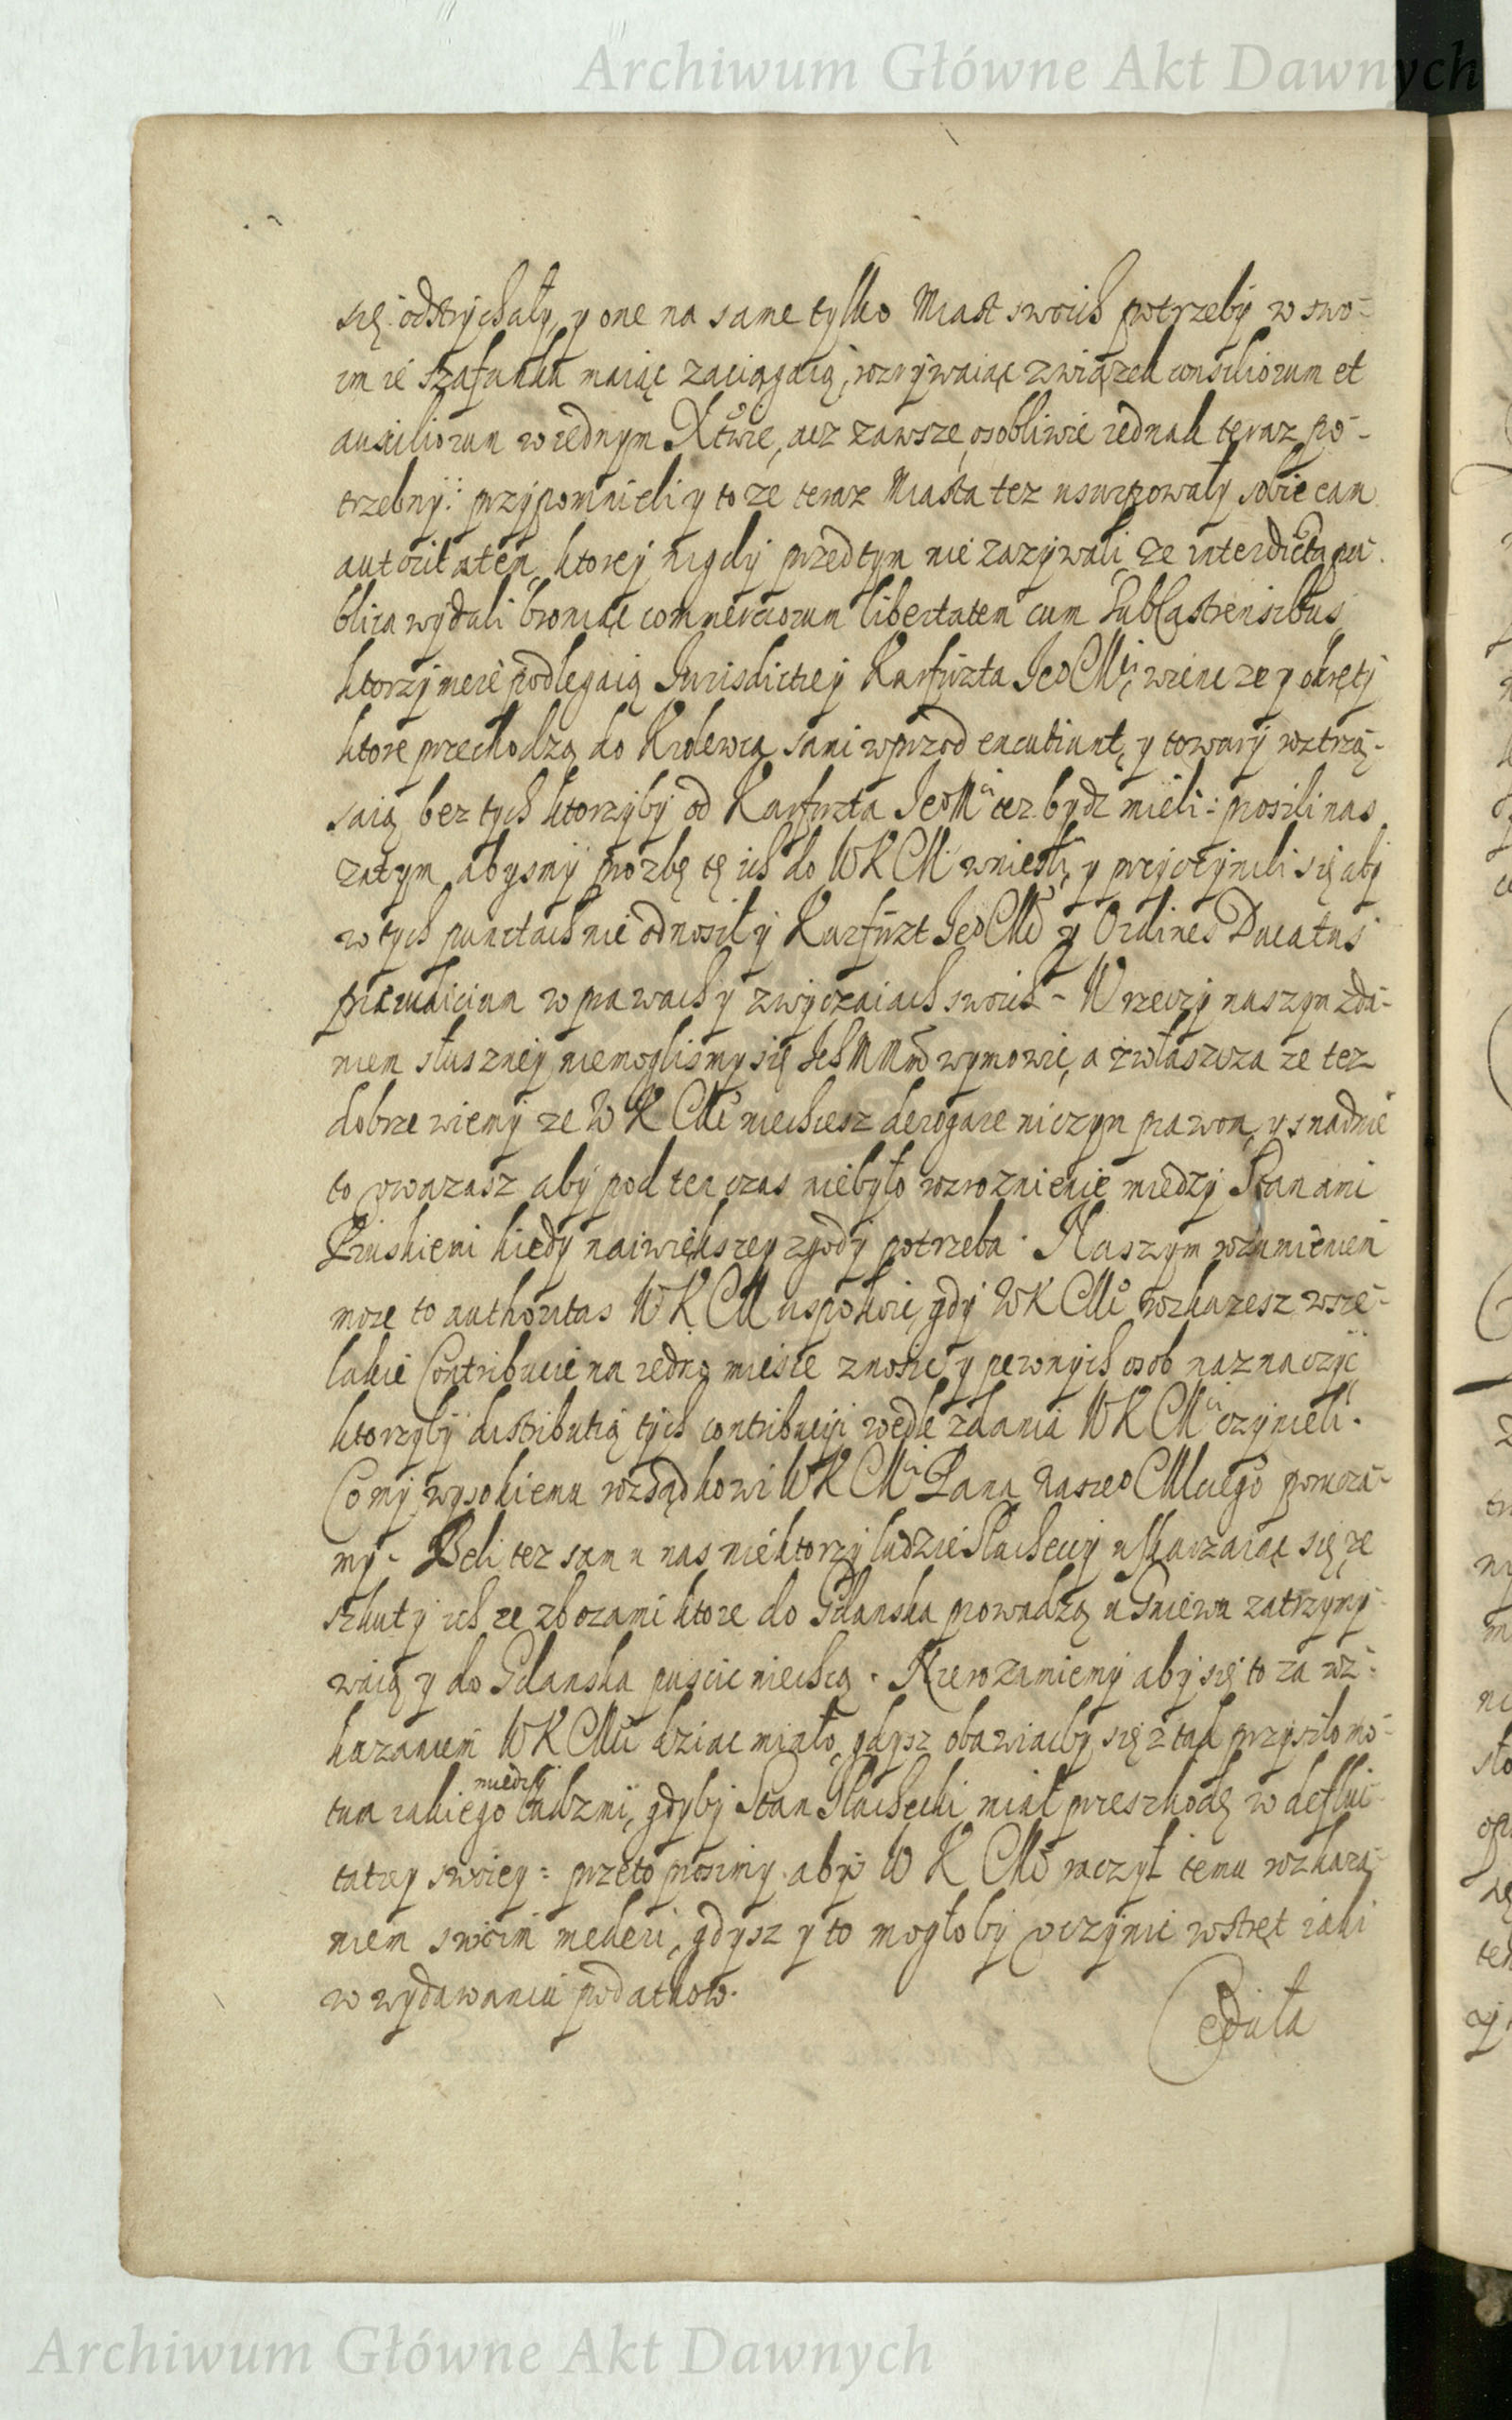 Archiwum Główne Akt Dawnych
się odstrychały, y one na same tylko Miast swoich potrzeby w swo-
im ie szafunku maiąc zaciągaią, rozrywaiąc związek consiliorum et
auxiliorum w iednym Xtwie, acz zawsze, osobliwie iednak teraz po-
trzebny: przypomnieli y to ze teraz Miasta tez usurpowały sobie eam
autoritatem, ktorej nigdy przedtym nie zazywali, ze interdicta pu-
blica wydali broniąc commerciorum libertatem cum Subcastrensibus,
ktorzy podlegaią Jurisdictiey Kurfirzta JeoMci, wiene ze y okręty
ktore przechodzą do Krolewca sami wprzod excutiunt, y towary roztrzą-
saią bez tych ktorzyby od Kurfirzta JeoMci tez bydz mieli: prosili nas
zatym, abysmy prozbę tę ich do WKCM wniesli, y przyczynili się aby
w tych punctach nie odnosił y Kurfirzt JeoCMć y Ordines Ducatus
praeiudicium w prawach y zwyczaiach swoich - W rzeczy naszym zda-
niem słuszney niemoglismy się IchMMm wymowic, a zwłaszcza ze tez
dobrze wiemy ze WKCMć niechcesz derogare niczym prawom, y snadnie
to uwazasz aby pod ten czas niebyło rozroznienie miedzy Stanami
Pruskiemi kiedy naiwiększey zgody potrzeba. Naszym rozumieniem
moze to authoritas WKCM uspokoic, gdy WKCMć rozkazesz wsze-
lakie Contribucie na iedno mieisce znosic y pewnych osob naznaczyć
ktorzyby distributią tych contribuciy wedle zdania WKCMci czynieli.
Co my wysokiemu rozsądkowi WKCMci Pana naszeo CMłciwego porucza-
my. Beli tez sam u nas niektorzy ludzie Slacheccy uskarzaiąc się ze
szkuty ich ze zbozami ktore do Gdanska prowadzą u Gniewu zatrzymy-
waią y do Gdanska puscic niechcą. Nierozumiemy aby się to za roz-
kazaniem WKCMci dziac miało, gdysz obawiacby się ztąd przyszło mo-
tum iakiego miedzy ludzmi, gdyby Stan Slachecki miał przeszkodę w deflui-
tatiey swoiey: przeto prosimy aby WKCMć raczył temu rozkaza-
niem swoim mederi, gdysz y to mogłoby uczynic wstręt iaki
w wydawaniu podatkow.
Cedula
Archiwum Główne Akt Dawnych